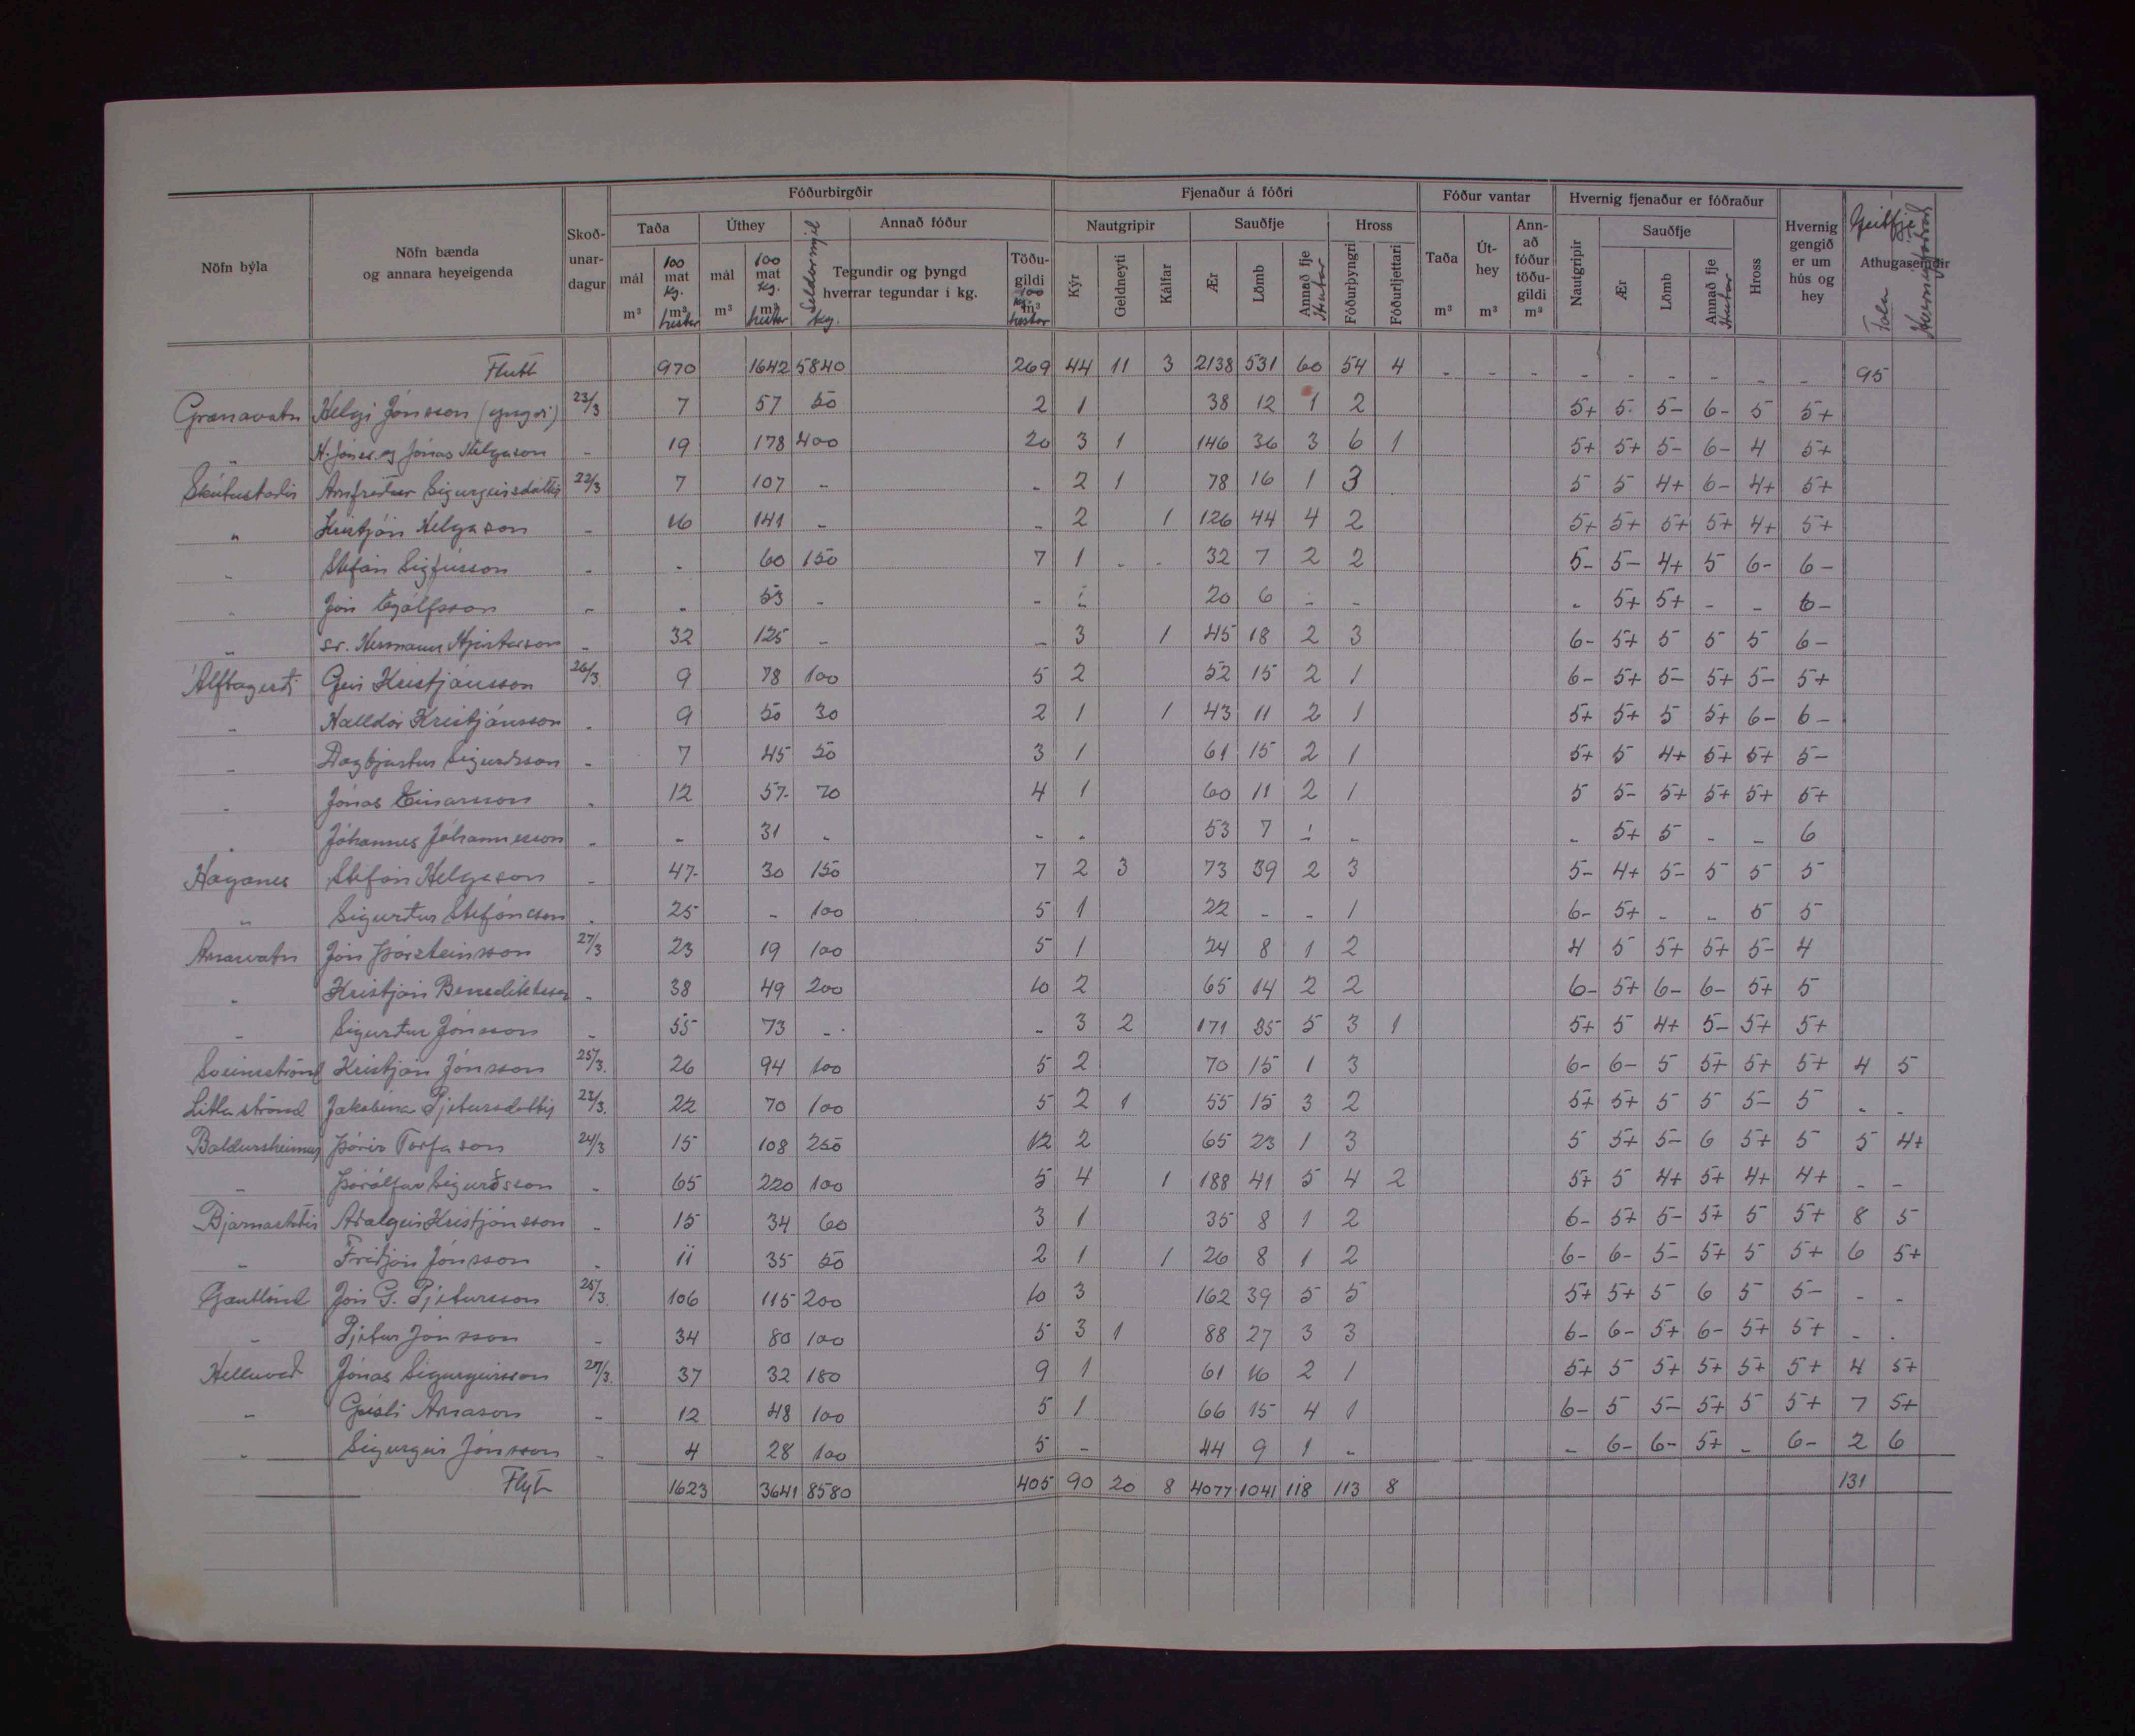 Fóðurbirgðir Fjenaður á fóðri Fóður vantar Hvernig fjenaður er fóðraður
Nöfn býla Nöfn bænda og annara heyeigenda Skoð-unar-dagur Taða Úthey Annað fóður Nautgripir Sauðfje Hross Taða Út-hey Ann-að fóður töðu-gildi Nautgripir Sauðfje Hross Hvernig gengið er um hús og hey Geitfje Athugasemdir
mál m³ 100 mat kg. m³ hestar mál m³ 100 mat kg. m³ hestar Síldarmjöl kg. Tegundir og þyngd hverrar tegundar í kg. Töðu-gildi 100 kg. m³ hestar Kýr Geldneyti Kálfar Ær Lömb Annað fje Hrútar Fóðurþyngri Fóðurljettari m³ m³ m³ Ær Lömb Annað fje Hrútar Tala Hvernig fóðrað
Flutt 970 1642 5840 269 44 11 3 2138 531 60 54 4 - - - - - - - - - 95
Grænavatn Helgi Jónsson (yngri) 23/3 7 57 50 2 1 38 12 1 2 5+ 5 5- 6- 5 5+
" H. Jónss. og Jónas Helgason - 19 178 400 20 3 1 146 36 3 6 1 5+ 5+ 5- 6- 4 5+
Skútustaðir Arnfríður Sigurgeirsdóttir 22/3 7 107 - - 2 1 78 16 1 3 5 5 4+ 6- 4+ 5+
" Kristján Helgason - 16 141 - - 2 1 126 44 4 2 5+ 5+ 5+ 5+ 4+ 5+
" Stefán Sigfússon - - 60 150 7 1 - - 32 7 2 2 5- 5- 4+ 5 6- 6-
" Jón Eyólfsson - - 53 - - - 20 6 - - - 5+ 5+ - - 6-
" sr. Hermann Hjartarson - 32 125 - - 3 1 45 18 2 3 6- 5+ 5 5 5 6-
Álftagerði Geir Kristjánsson 26/3. 9 78 100 5 2 52 15 2 1 6- 5+ 5- 5+ 5- 5+
" Halldór Kristjánsson - 9 50 30 2 1 1 43 11 2 1 5+ 5+ 5 5+ 6- 6-
" Dagbjartur Sigurðsson - 7 45 50 3 1 61 15 2 1 5+ 5 4+ 5+ 5+ 5-
" Jónas Einarsson - 12 57- 70 4 1 60 11 2 1 5 5- 5+ 5+ 5+ 5+
" Jóhannes Jóhannesson - - 31 - - - 53 7 - - - 5+ 5 - - 6
Haganes Stefán Helgason - 47- 30 150 7 2 3 73 39 2 3 5- 4+ 5- 5 5 5
" Sigurður Stefánsson - 25 - 100 5 1 22 - - 1 6- 5+ - - 5 5
Arnarvatn Jón Þorsteinsson 27/3 23 19 100 5 1 24 8 1 2 4 5 5+ 5+ 5- 4
" Kristján Benediktsson - 38 49 200 10 2 65 14 2 2 6- 5+ 6- 6- 5+ 5
" Sigurður Jónsson - 55 73 - - 3 2 171 35 5 3 1 5+ 5 4+ 5- 5+ 5+
Sveinsströnd Kristján Jónsson 25/3. 26 94 100 5 2 70 15 1 3 6- 6- 5 5+ 5+ 5+ 4 5
Litlaströnd Jakobína Pjetursdóttir 23/3. 22 70 100 5 2 1 55 15 3 2 5+ 5+ 5 5 5- 5 - -
Baldursheimur Þórir Torfason 24/3 15 108 250 12 2 65 23 1 3 5 5+ 5- 6 5+ 5 5 4+
" Þórólfur Sigurðsson - 65 220 100 5 4 1 188 41 5 4 2 5+ 5 4+ 5+ 4+ 4+ - -
Bjarnastaðir Aðalgeir Kristjánsson - 15 34 60 3 1 35 8 1 2 6- 5+ 5- 5+ 5 5+ 8 5
" Friðjón Jónsson - 11 35 50 2 1 1 26 8 1 2 6- 6- 5- 5+ 5 5+ 6 5+
Gautlönd Jón G. Pjetursson 25/3. 106 115 200 10 3 162 39 5 5 5+ 5+ 5 6 5 5- - -
" Pjetur Jónsson - 34 80 100 5 3 1 88 27 3 3 6- 6- 5+ 6- 5+ 5+ - -
Helluvað Jónas Sigurgeirsson 27/3. 37 32 180 9 1 61 16 2 1 5+ 5 5+ 5+ 5+ 5+ 4 5+
" Gísli Árnason - 12 48 100 5 1 66 15 4 1 6- 5 5- 5+ 5 5+ 7 5+
" Sigurgeir Jónsson - 4 28 100 5 - 44 9 1 - - 6- 6- 5+ - 6- 2 6
Flyt 1623 3641 8580 405 90 20 8 4077 1041 118 113 8 131